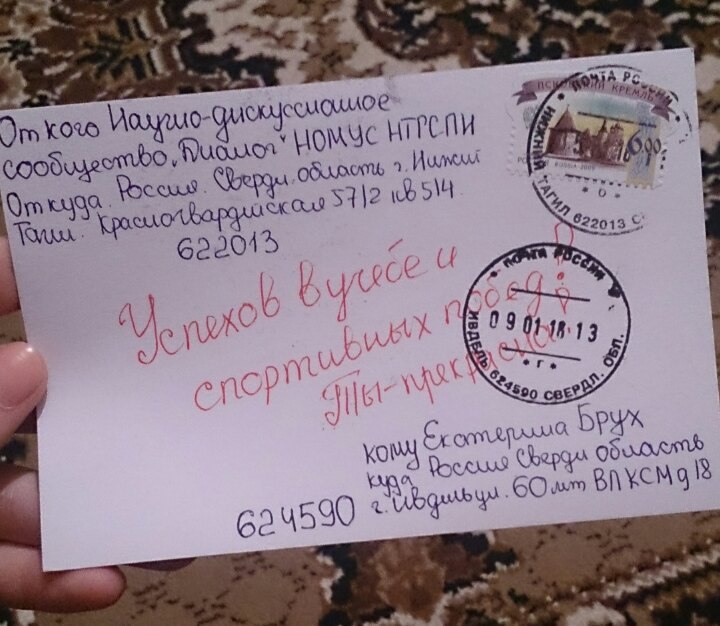 От кого Научно-дискуссионное
сообщество „Диалог“ НОМУС НТГСПИ
Откуда. Россия. Свердл. область г. Нижний
Тагил. Красногвардейская 57/2 кв 514
622013
ПСКОВСКИЙ КРЕМЛЬ
6,00
RUSSIA 2009
ПОЧТА РОССИИ
НИЖНИЙ ТАГИЛ 622013
Успехов в учебе и
спортивных побед!
Ты-прекрасна!
ПОЧТА РОССИИ
09 01 18 13
* г *
ИВДЕЛЬ 624590 СВЕРДЛ. ОБЛ.
кому Екатерина Брух
куда Россия Свердл область
г. Ивдель ул. 60 лет ВЛКСМ д 18
624590